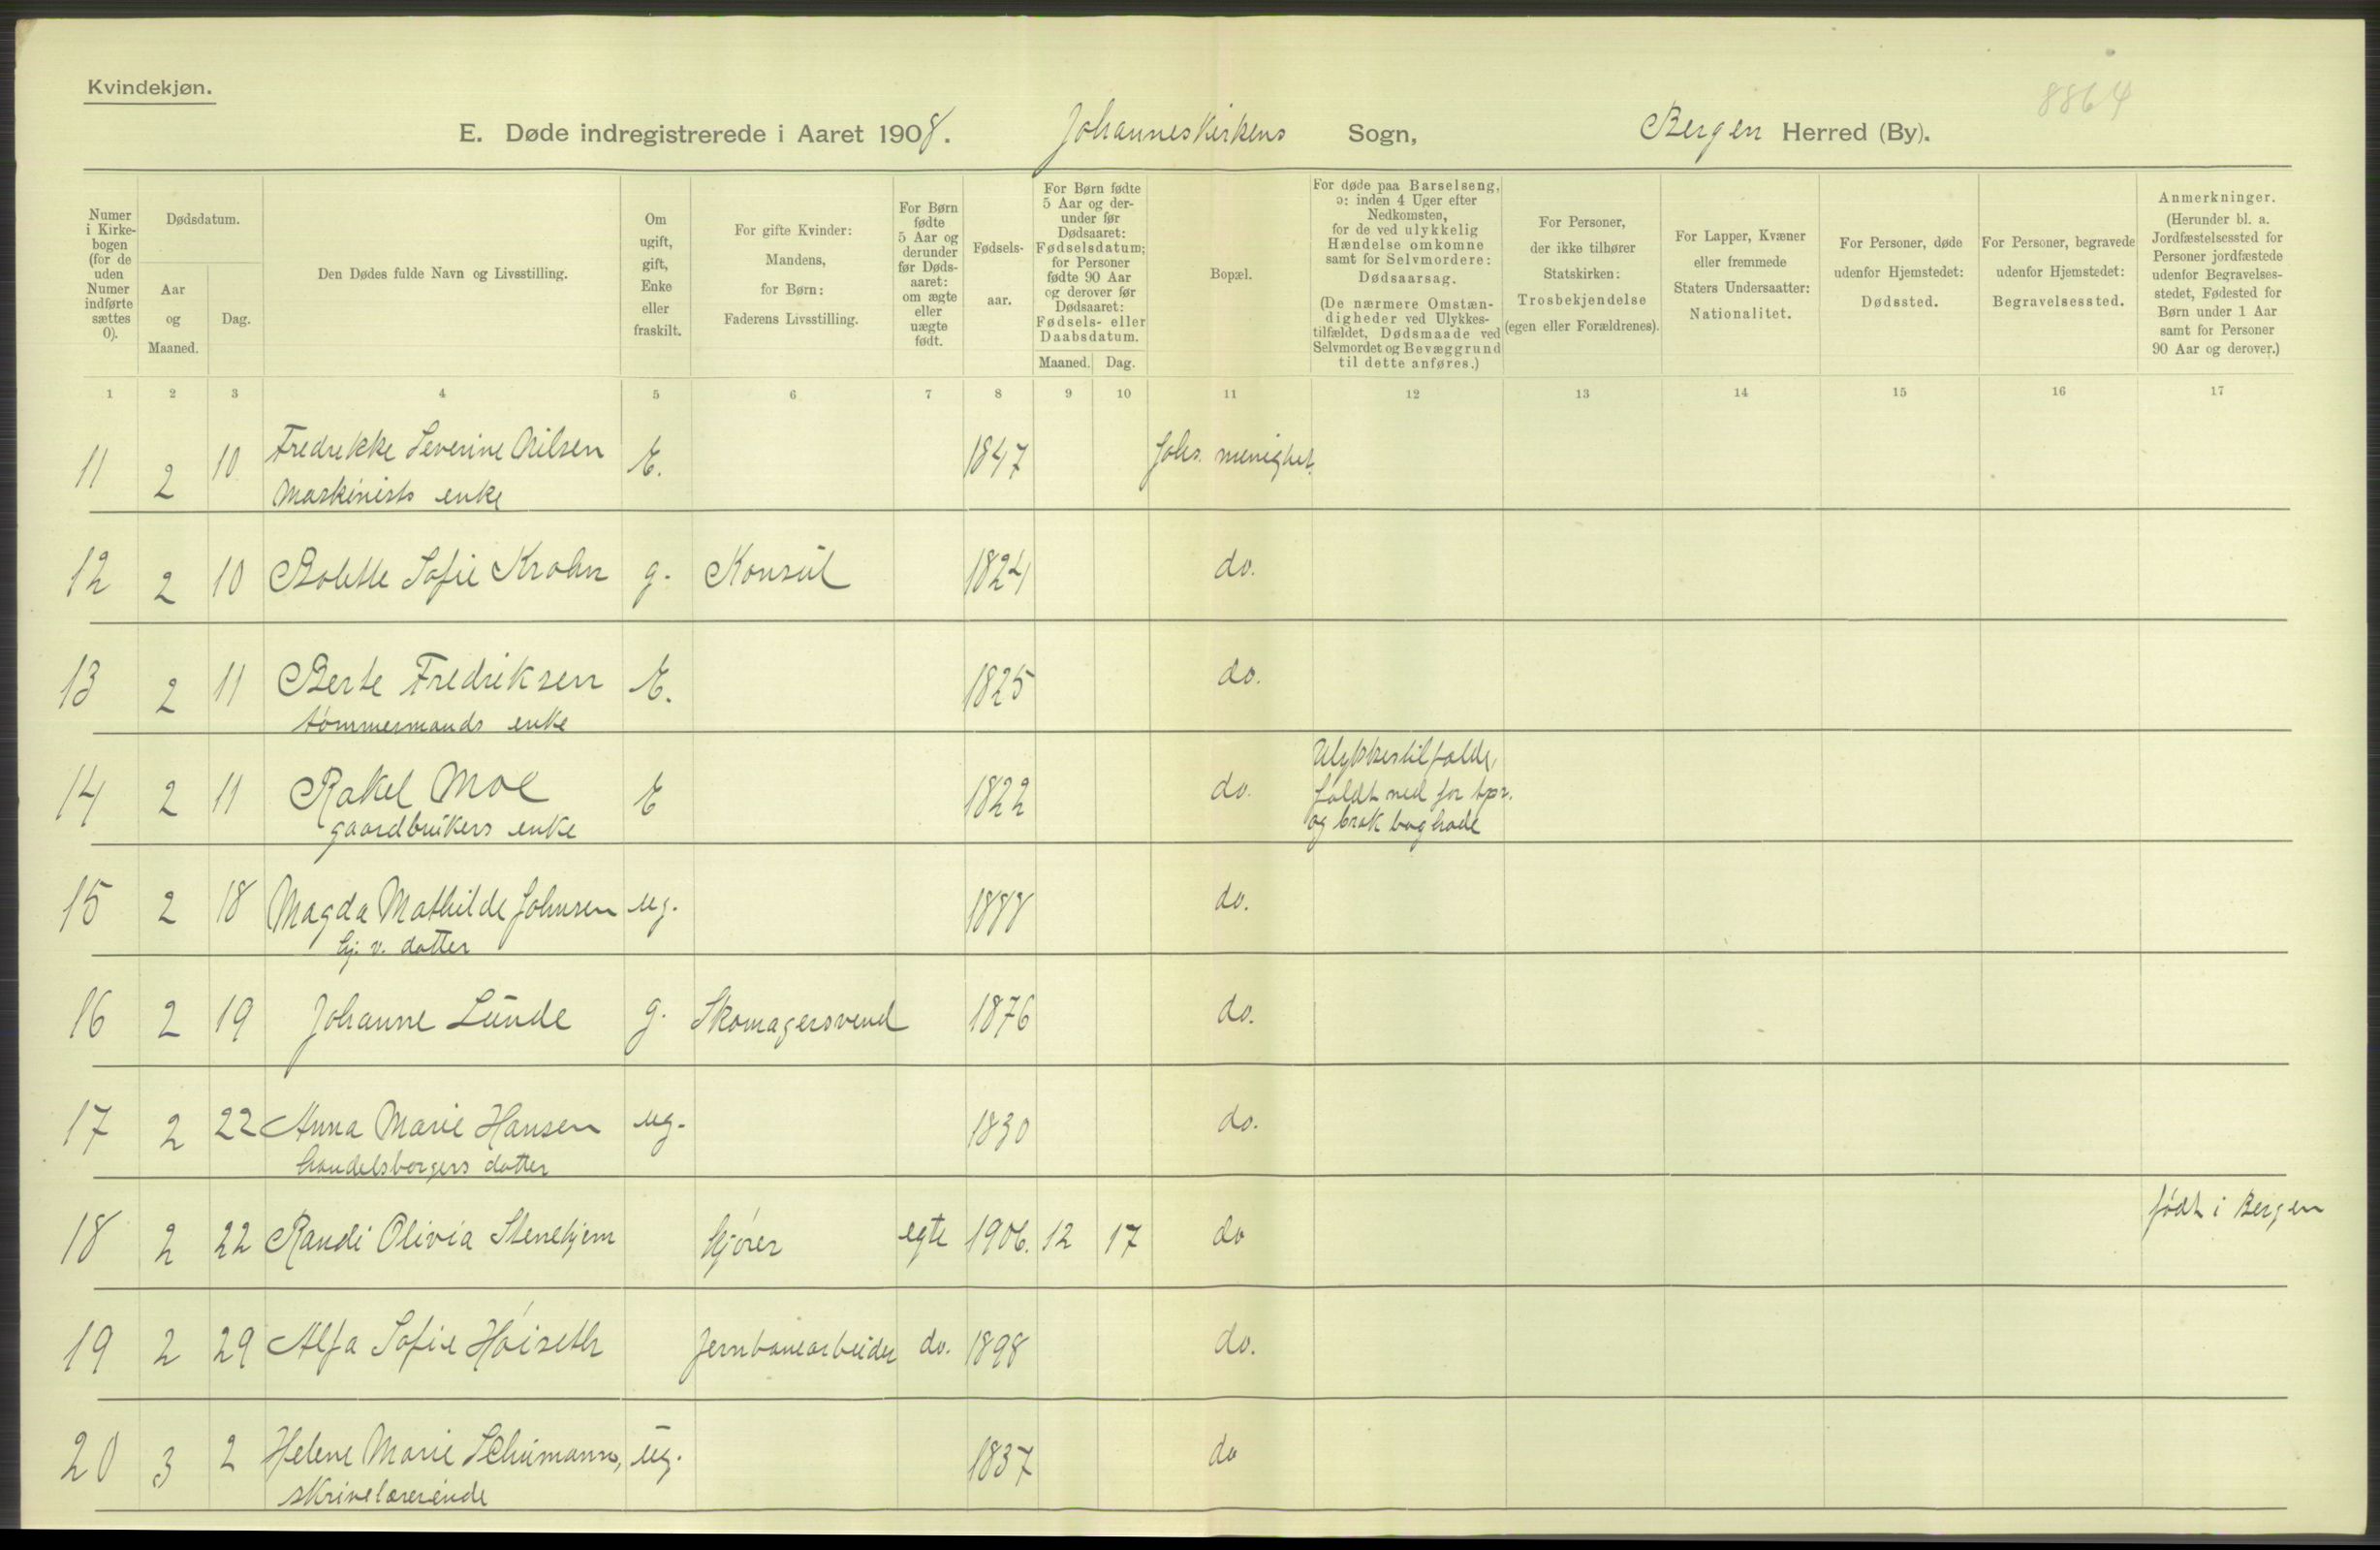 Kvindekjøn.
8864
E. Døde indregistrerede i Aaret 1908. Johanneskirkens Sogn, Bergen Herred (By).
Numer i Kirkebogen (for de uden Numer indførte sættes 0).
Dødsdatum.
Aar og Maaned.
Dag.
Den Dødes fulde Navn og Livsstilling.
Om ugift, gift, Enke eller fraskilt.
For gifte Kvinder: Mandens, for Børn: Faderens Livsstilling.
For Børn fødte 5 Aar og derunder før Dødsaaret: om ægte eller uægte født.
Fødselsaar.
For Børn fødte 5 Aar og derunder før Dødsaaret: Fødselsdatum; for Personer fødte 90 Aar og derover før Dødsaaret: Fødsels- eller Daabsdatum.
Maaned. Dag.
Bopæl.
For døde paa Barselseng, ɔ: inden 4 Uger efter Nedkomsten, for de ved ulykkelig Hændelse omkomne samt for Selvmordere: Dødsaarsag. (De nærmere Omstændigheder ved Ulykkestilfældet, Dødsmaade ved Selvmordet og Bevæggrund til dette anføres.)
For Personer, der ikke tilhører Statskirken: Trosbekjendelse (egen eller Forældrenes).
For Lapper, Kvæner eller fremmede Staters Undersaatter: Nationalitet.
For Personer, døde udenfor Hjemstedet: Dødssted.
For Personer, begravede udenfor Hjemstedet: Begravelsessted.
Anmerkninger. (Herunder bl. a. Jordfæstelsessted for Personer jordfæstede udenfor Begravelsesstedet, Fødested for Børn under 1 Aar samt for Personer 90 Aar og derover.)
1 2 3 4 5 6 7 8 9 10 11 12 13 14 15 16 17
11 2 10 Fredrekke Severine Nilsen E. 1847 Johs. menighet.
Maskinists enke
12 2 10 Bolette Sofie Krohn g. Konsul 1824 do.
13 2 11 Berte Fredriksen E. 1825 do.
tømmermands enke
14 2 11 Rakel Moe E 1822 do. Ulykkestilfælde,
faldt ned for tpr.
og brak baghode
gaardbrukers enke
15 2 18 Magda Mathilde Johnsen ug. 1888 do.
hj. v. datter
16 2 19 Johanne Lunde g. Skomagersvend 1876 do.
17 2 22 Anna Marie Hansen ug. 1830 do.
handelsborgers datter
18 2 22 Randi Olivia Stenehjem kjører egte 1906. 12 17 do født i Bergen
19 2 29 Alfa Sofie Høiseth Jernbanearbeider do. 1898 do.
20 3 2 Helene Marie Schumann, ug. 1837 do
skrivelærerinde